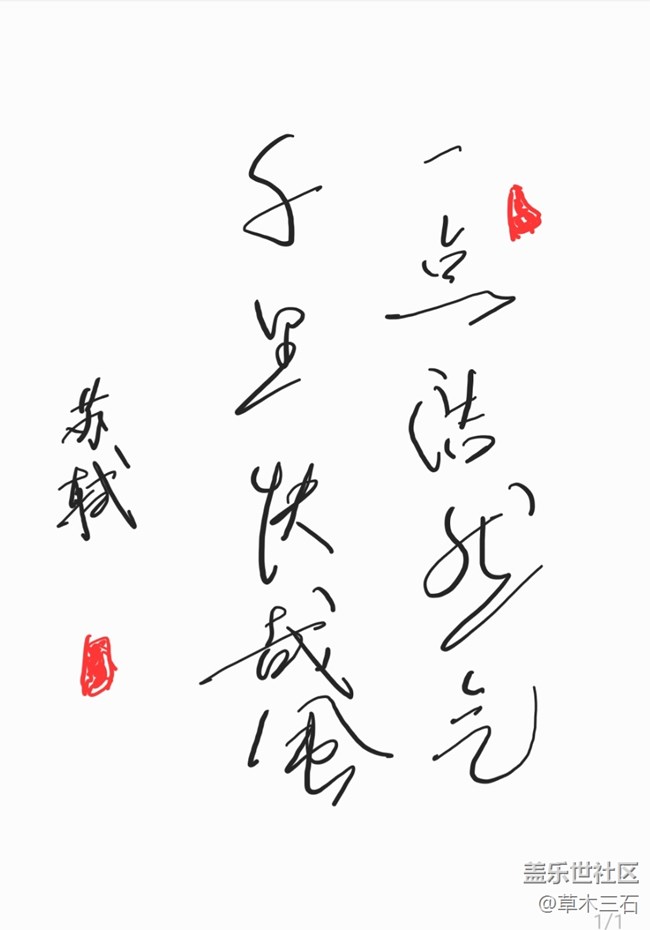 一点浩然气
千里快哉風
苏轼
盖乐世社区
@草木三石
1/1